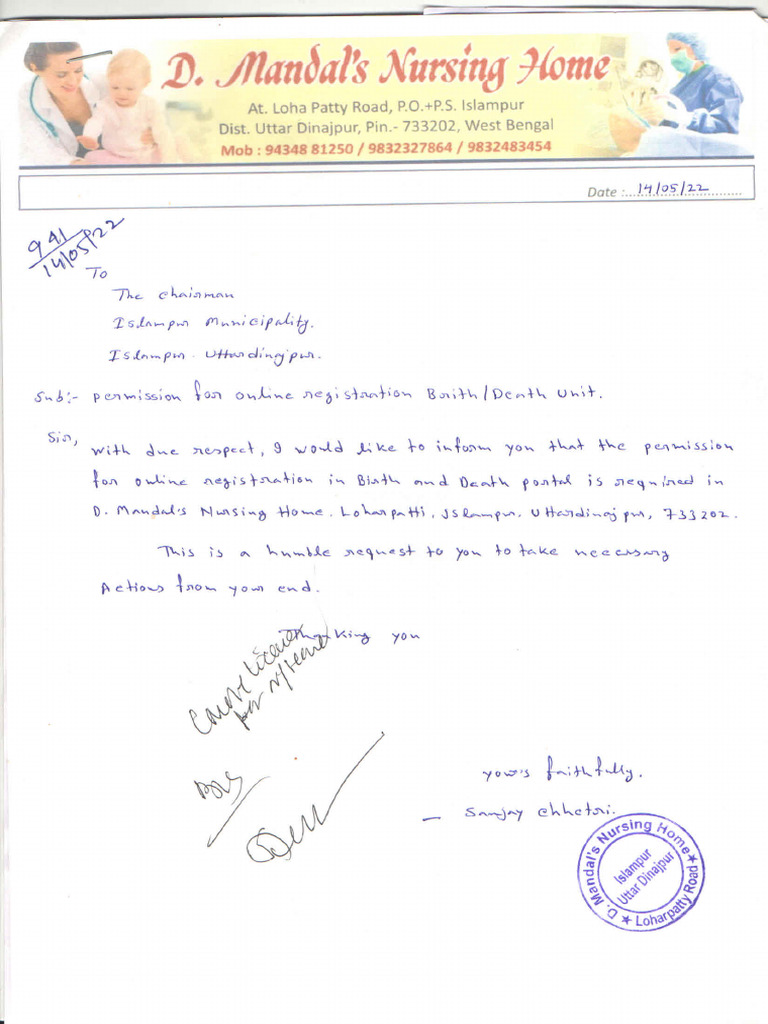 D. Mandal's Nursing Home
At. Loha Patty Road, P.O.+P.S. Islampur
Dist. Uttar Dinajpur, Pin.- 733202, West Bengal
Mob : 94348 81250 / 9832327864 / 9832483454
Date :..14/05/22
941
14/05/22
To
The Chairman
Islampur Municipality.
Islampur. Uttardinajpur.
Sub:- permission for online registration Brith/Death Unit.
Sir,
With due respect, I would like to inform you that the permission
for online registration in Birth and Death portal is required in
D. Mandal's Nursing Home. Loharpatti, Islampur. Uttardinajpur, 733202.
This is a humble request to you to take neccessary
Actions from your end.
Thanking you
your's faithfully.
– Sanjay Chhetri.
D. Mandal's Nursing Home
Islampur
Uttar Dinajpur
★ Loharpatty Road ★